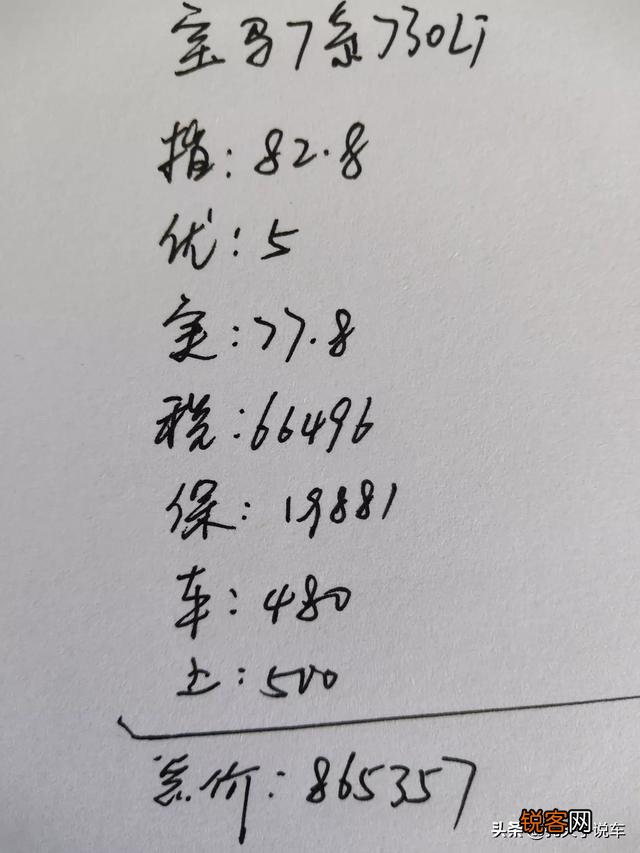 宝马7系730Li
指:82.8
优:5
实:77.8
税:66496
保:19881
车:480
上:500
总价:865357
锐客网
头条
说车